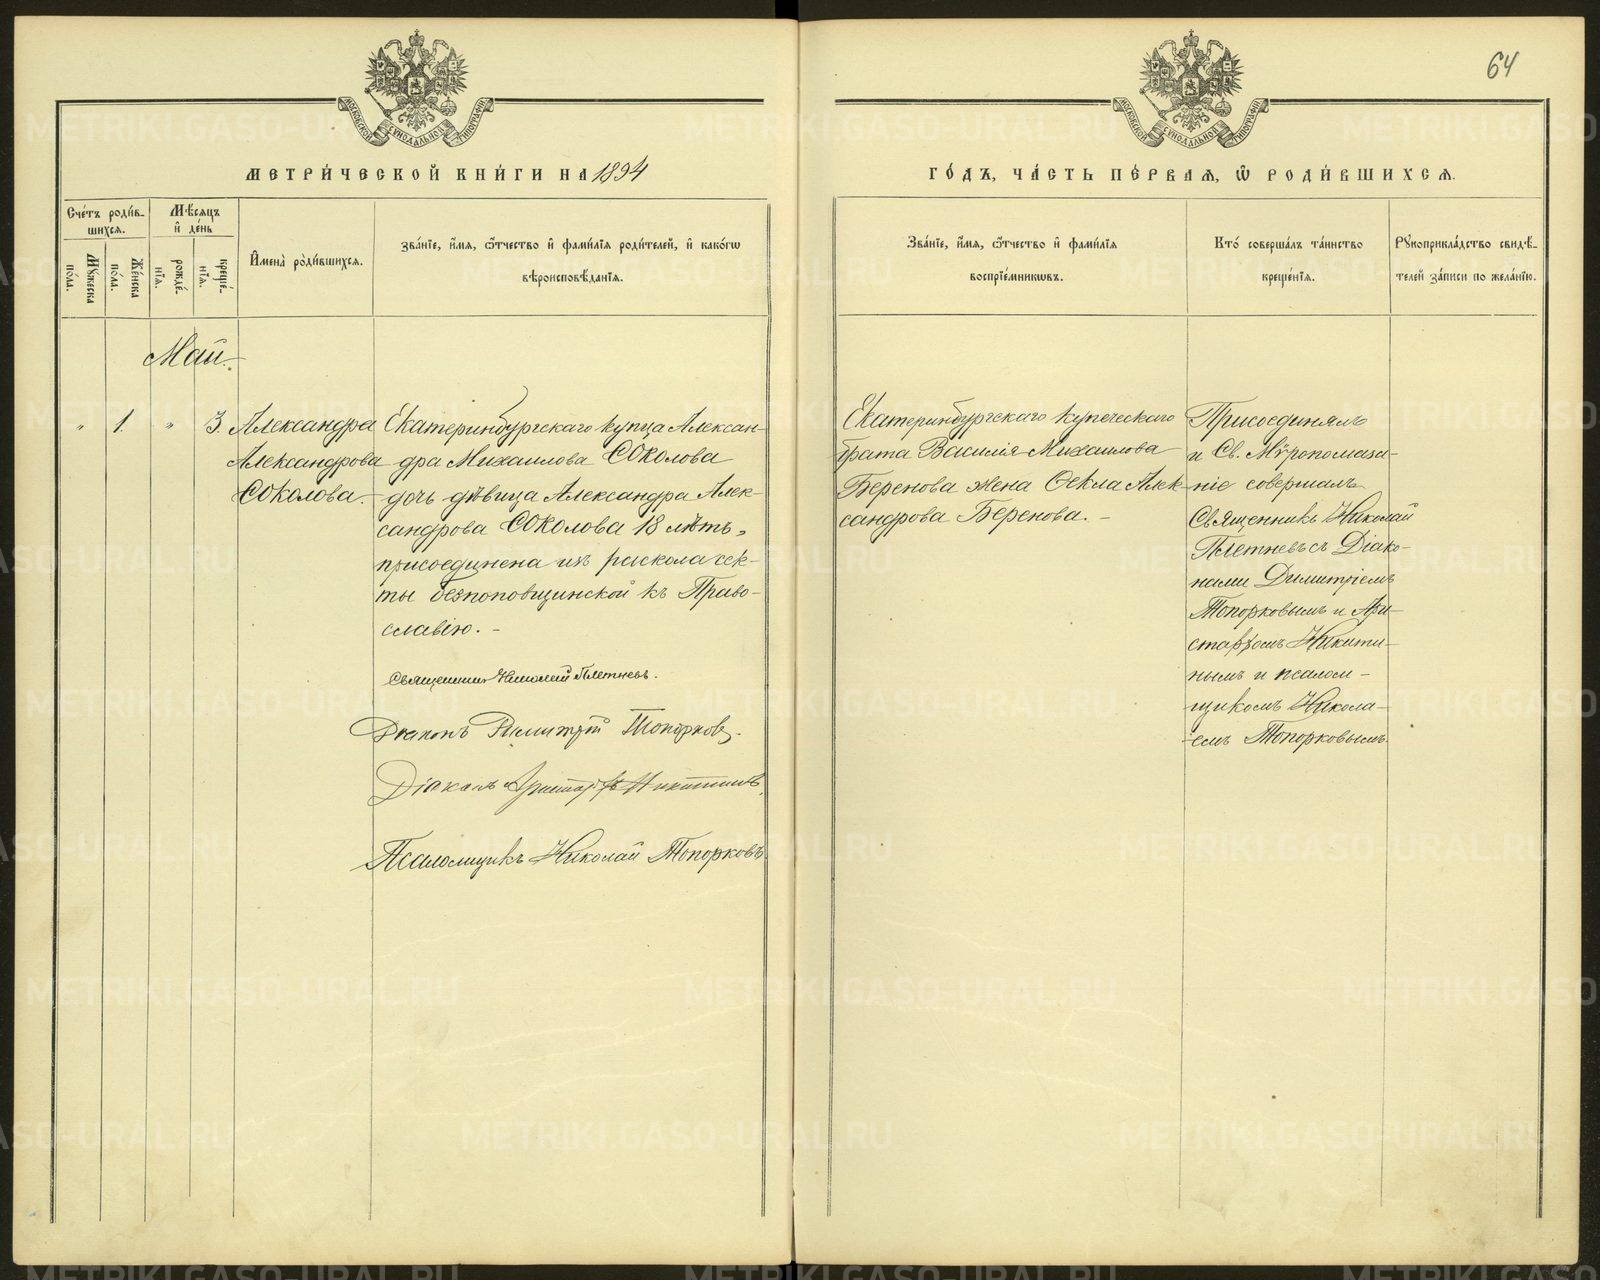 64
МОСКОВСКОЙ СѴНОДАЛЬНОЙ ТИПОГРАФІИ
МОСКОВСКОЙ СѴНОДАЛЬНОЙ ТИПОГРАФІИ
МЕТРИ́ЧЕСКОЙ КНИ́ГИ НА 1894
ГО́ДЪ, ЧА́СТЬ ПЕ́РВАѦ, Ѿ РОДИ́ВШИХСѦ.
Сче́тъ роди́в-
шихсѧ.
Мѣ́сѧцъ
и҆ де́нь
Мꙋ́жеска
по́ла.
Же́нска
по́ла.
рожде́-
нїѧ.
креще́-
нїѧ.
И҆мена̀ роди́вшихсѧ.
Зва́нїе, и҆́мѧ, ѻ҆́тчество и҆ фами́лїѧ роди́телей, и҆ како́гѡ
вѣроисповѣ́данїѧ.
Зва́нїе, и҆́мѧ, ѻ҆́тчество и҆ фами́лїѧ
воспрїе́мникѡвъ.
Кто̀ соверша́лъ та́инство
креще́нїѧ.
Рꙋкоприкла́дство свидѣ́-
телей за́писи по жела́нїю.
Май.
„ 1. „ 3.
Александра
Александрова
Соколова.
Екатеринбургскаго купца Алексан-
дра Михаилова Соколова
дочь дѣвица Александра Алек-
сандрова Соколова 18 лѣтъ,
присоединена изъ раскола сек-
ты безпоповщинской къ Право-
славію. –
Священникъ Николай Плетневъ.
Діаконъ Димитрій Топорковъ.
Діаконъ Аристархъ Никитинъ.
Псаломщикъ Николай Топорковъ.
Екатеринбургскаго купеческаго
брата Василія Михаилова
Беренова жена Ѳекла Алек-
сандрова Беренова. –
Присоединялъ
и Св. Мѵропомаза-
ніе совершалъ
Священникъ Николай
Плетневъ съ Діако-
нами Димитріемъ
Топорковымъ и Ари-
стархомъ Никити-
нымъ и псалом-
щикомъ Никола-
емъ Топорковымъ.
METRIKI.GASO-URAL.RU